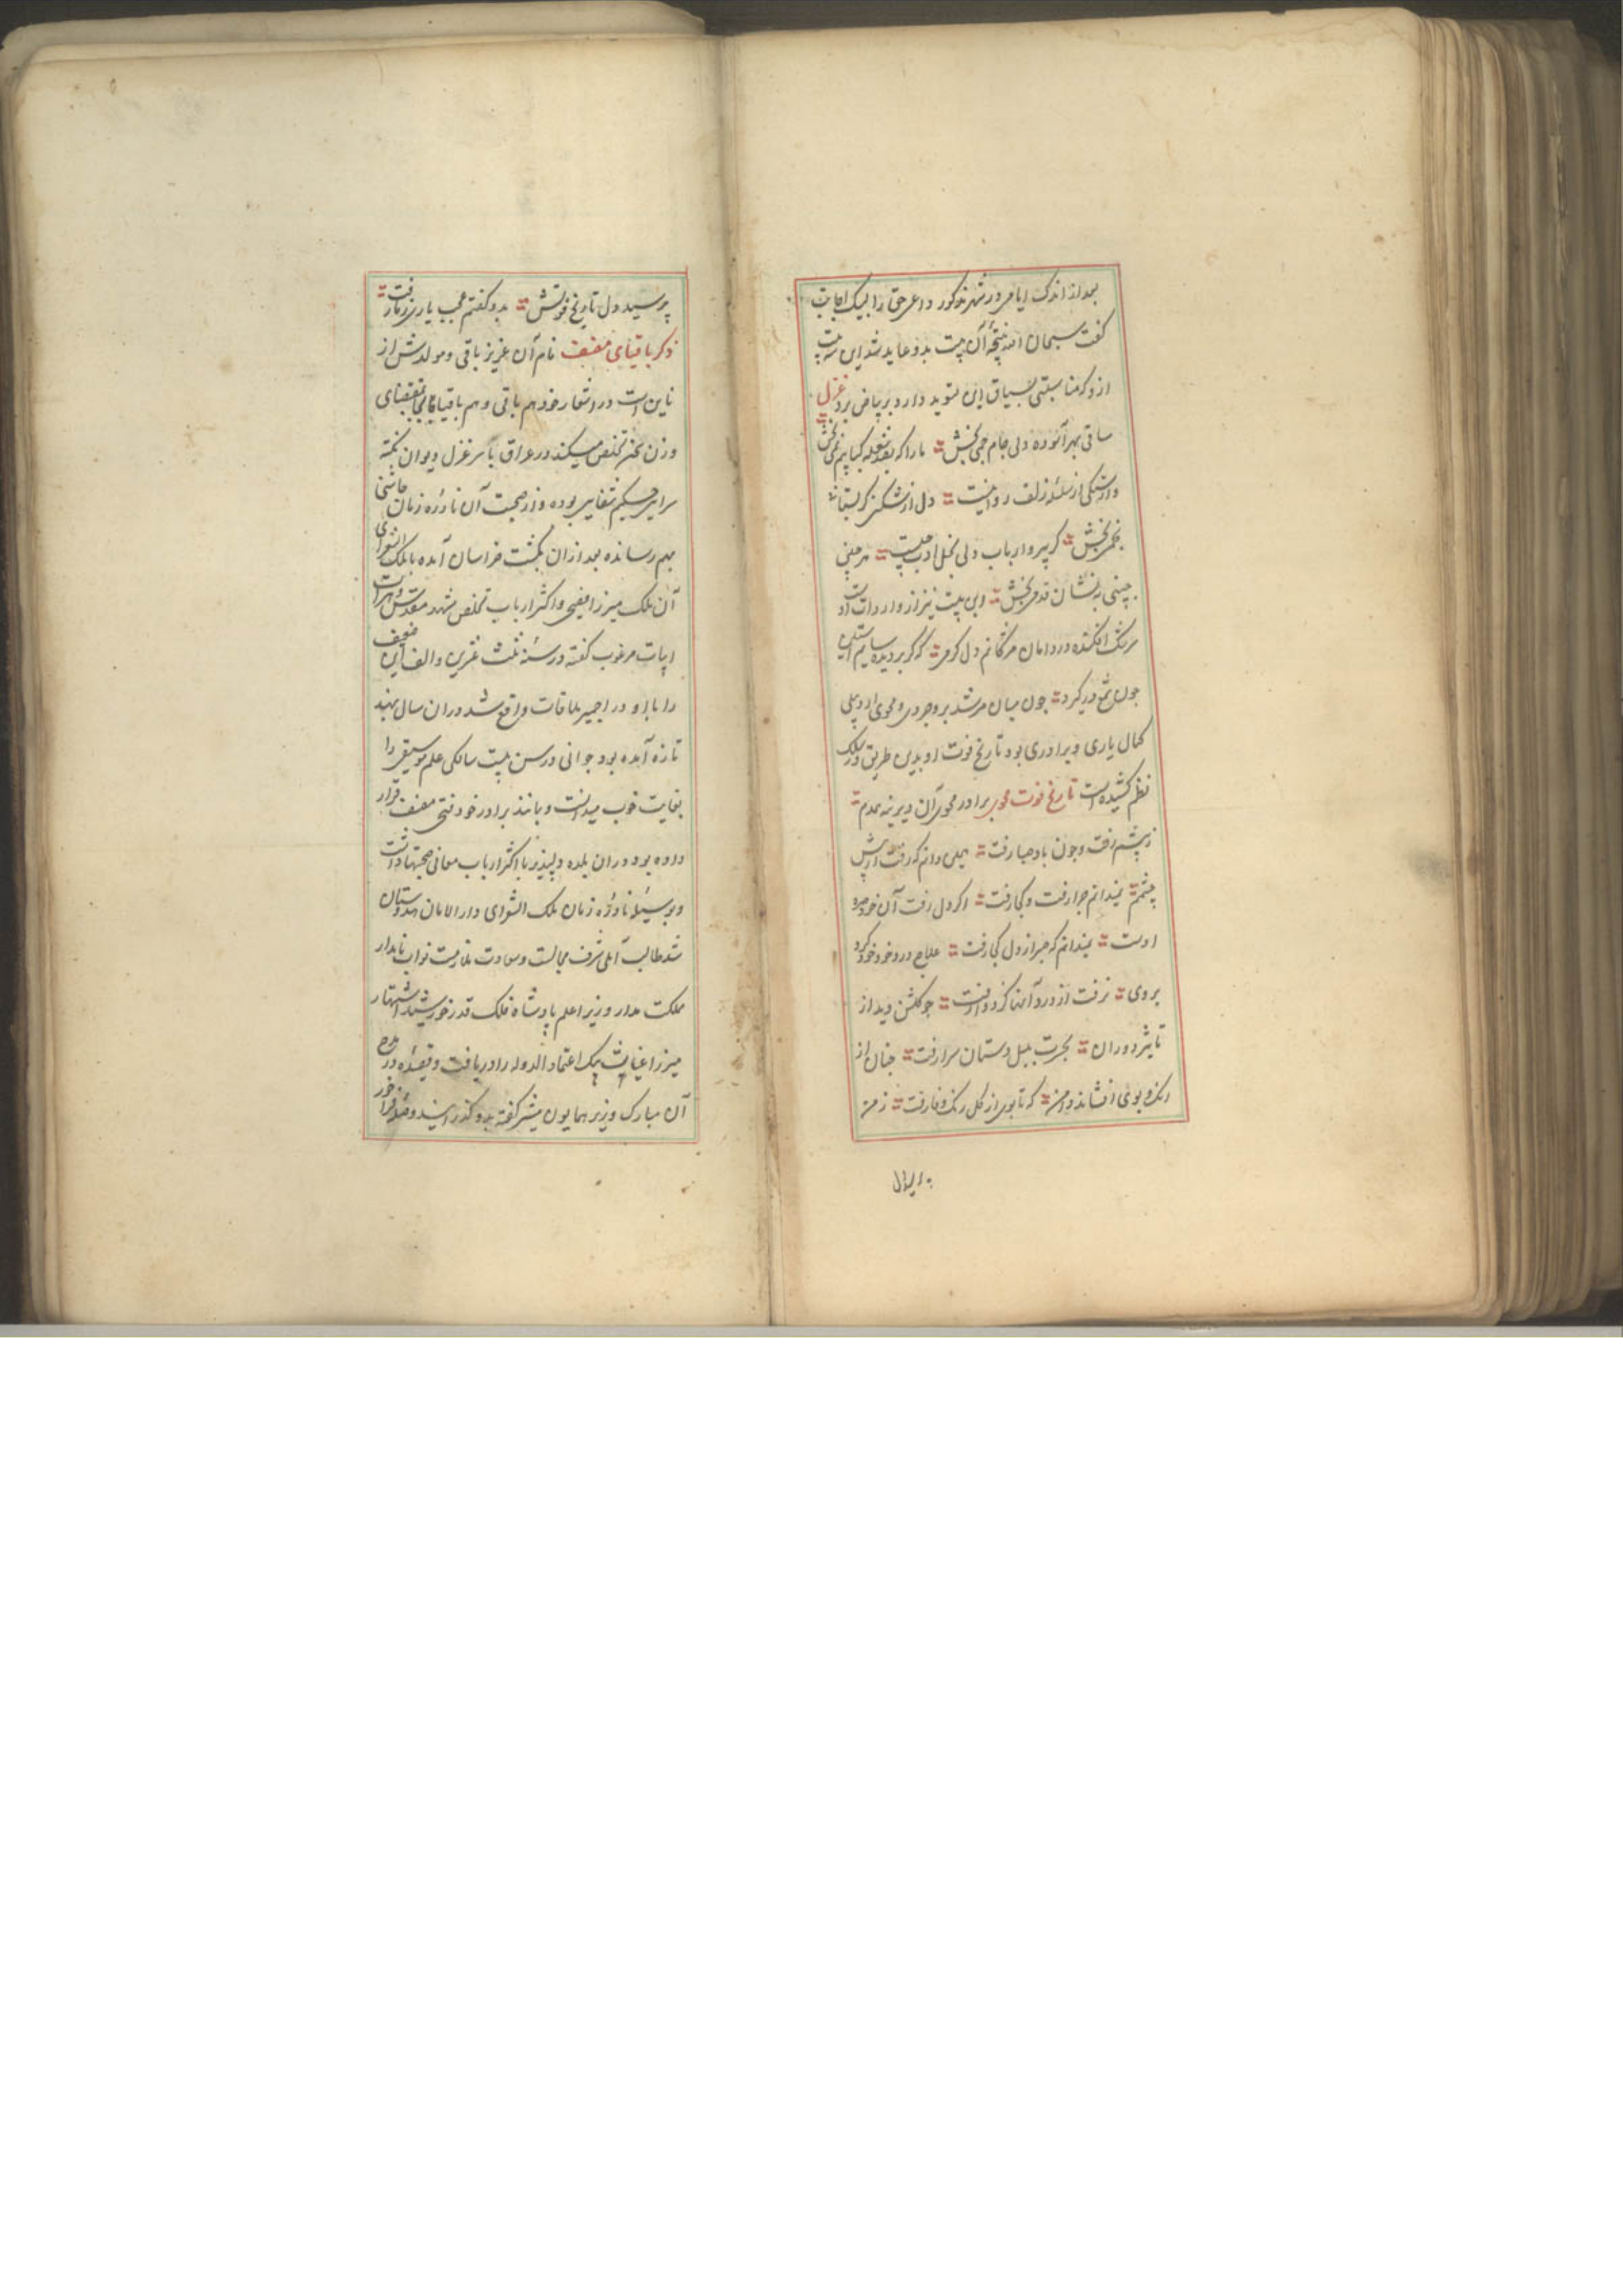 بعد از اندک ایامی در شهر مذکور داعی حق را لبیک اجابت
گفت سبحان الله نتیجه آن بیت بدو عاید شد این سه بیت
از و که مناسبتی بسیاق این تسوید دارد بر بیاض برد غزل
ساقی بهر آلوده دلی جام جمی بخش = ما را که
وارستگی از سلسله زلف روا نیست = دل از شکنی
بخمی بخش = کر پیرو ارباب دلی بخل ادب چیست = هر
چینی به نشان قدمی بخش = وین بیت نیز از واردات اوست
سرشک افکنده در دامان مژگانم دل کرمی = که کر بر دیده سایم آستین
چون شمع در کیرد = چون میان مرشد بروجردی و محوی اردبیلی
کمال یاری و برادری بود تاریخ فوت او بدین طریق در سلک
نظم کشیده است تاریخ فوت محوی برادر محوی آن دیرینه همدم =
ز پیشم رفت و چون باد صبا رفت = همی دانم که رفت از پیش
چشمم = نمیدانم چرا رفت و کجا رفت = اکر دل رفت آن خود همره
اوست = نمیدانم که صبر از دل کجا رفت = علاج درد خود خود کرد
بروی = نرفت از درد آنها کز دوا رفت = چو کلشن دید از
تاثیر دوران = بحسرت بلبل دستان سرا رفت = چنان از
رنک و بوی افشاند دامن = که تا بوی از کل رنک وفا رفت = ز من
پرسید دل تاریخ فوتش = بدو کفتم عجب یاری ز ما رفت =
ذکر باقیای مصنف نام آن عزیز باقی و مولدش از
نایین است در اشعار خود هم باقی و هم باقیا بمقتضای
وزن شعر تخلص میکند در عراق با سر غزل دیوان نکته
سرایی حکیم شفایی بوده و از صحبت آن نادره زمان چاشنی
بهم رسانده بعد از ان بکشت خراسان آمده با ملک الشعرای
آن ملک میرزا فصیحی و اکثر ارباب تخلص مشهد مقدس و هرات
ابیات مرغوب کفته در سنه ثلث عشرین و الف این ضعیف
را با او در اجمیر ملاقات واقع شد در ان سال بهند
تازه آمده بود جوانی در سن بیست سالکی علم موسیقی را
بغایت خوب میدانست و بمانند برادر خود فتحی مصنف قرار
داده بود در ان بلده دلپذیر با اکثر ارباب معانی صحبتها داشت
و بوسیله نادره زمان ملک الشعرای دار الامان هندوستان
شد طالب آملی شرف مجالست و سعادت ملازمت نواب نامدار
مملکت مدار وزیر اعلم پادشاه فلک قدر خورشید اشتهار
میرزا غیاث بیک اعتماد الدوله را دریافت و قصیده در مدح
آن مبارک وزیر همایون مشیر کفته بدو کذرانید و صله فراخور